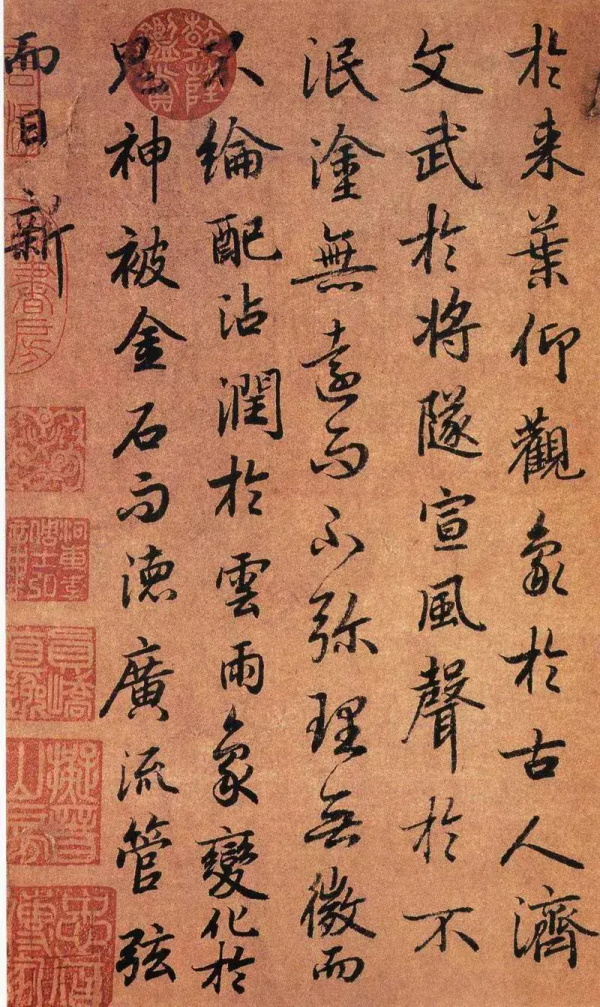 於来葉仰觀象於古人濟
文武於将隧宣風聲於不
泯塗無遠而不弥理無微而
不綸配沾潤於雲雨象變化於
鬼神被金石而徳廣流管弦
而日新